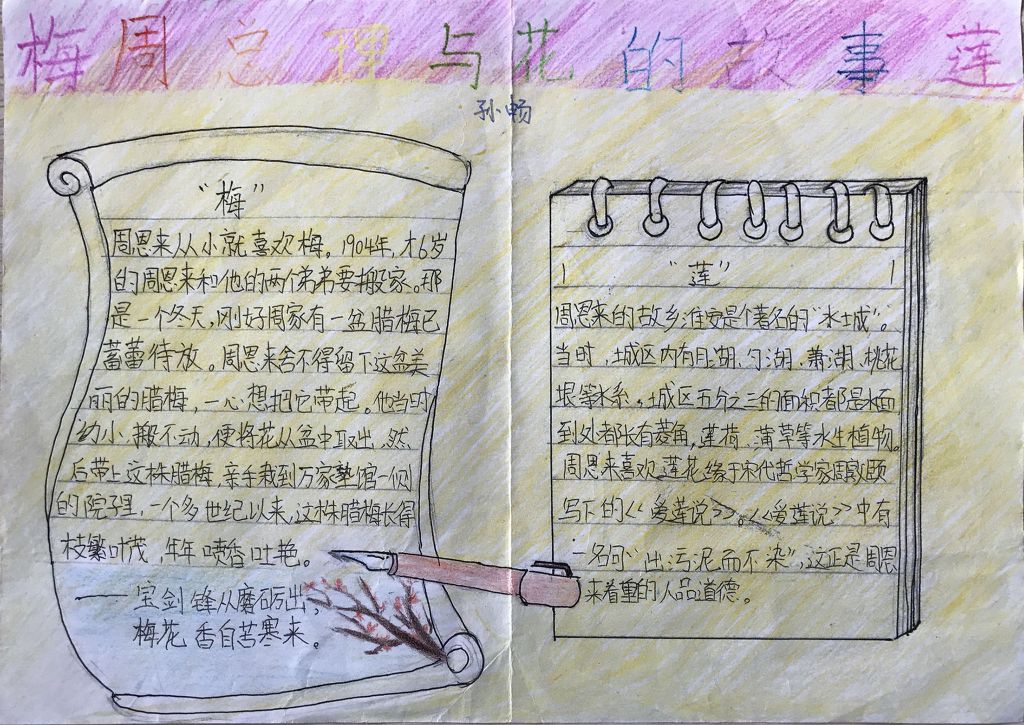 梅周总理与花的故事莲
孙畅
“梅”
周恩来从小就喜欢梅。1904年,才6岁
的周恩来和他的两个弟弟要搬家。那
是一个冬天,刚好周家有一盆腊梅已
蓄蕾待放。周恩来舍不得留下这盆美
丽的腊梅,一心想把它带起。他当时
幼小搬不动,便将花从盆中取出,然
后带上这株腊梅,亲手栽到万家塾馆一侧
的院子里,一个多世纪以来,这株腊梅长得
枝繁叶茂,年年喷香吐艳。
——宝剑锋从磨砺出,
梅花香自苦寒来。
“莲”
周恩来的故乡淮安是个著名的“水城”。
当时,城区内有月湖、勺湖、萧湖、桃花
垠等水系,城区五分之三的面积都是水面
到处都长有菱角,莲荷、蒲草等水生植物。
周恩来喜欢莲花缘于宋代哲学家周敦颐
写下的《爱莲说》。《爱莲说》中有
一名句“出污泥而不染”,这正是周恩
来着重的人品道德。